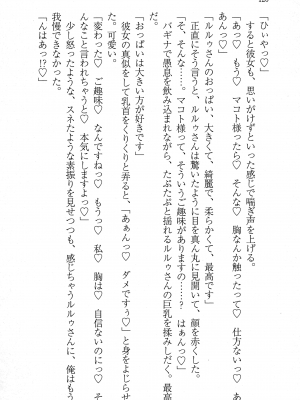 「ひぃやっ♡」
すると彼女も、思いがけずといった感じで喘ぎ声を上げる。
「あっ♡　もう♡　マコト様ったら♡　そんな♡　胸なんか触ったって♡　仕方ないっ♡
あんっ♡」
「ルルゥさんのおっぱい、大きくて、綺麗で、柔らかくて、最高です！」
正直にそう言うと、ルルゥさんは驚いたように目を真ん丸に見開いて、顔を赤くした。
「そ、そんなっ……。マコト様って、そういうご趣味がありますの……？　はぁんっ♡」
バギナで愚息を飲み込まれながら、たぷたぷと揺れるルルゥさんの巨乳を揉みしだく。最高
だ。
「おっぱいは大きい方が好きです！」
彼女の真似をして乳首をくりくりと弄ると、「あぁんっ♡　ダメですぅ♡」と身をよじらせ
た。可愛い。
「変わった♡　ご趣味♡　なんですねっ♡　もうっ♡　私♡　胸は♡　自信ないのにっ♡　そ
んなこと言われちゃうと♡　本気にしますよっ♡」
少し怒ったような、スネたような素振りを見せつつも、感じちゃうルルゥさんに、俺はもう
我慢できなかった。
「んはあっ！？♡」